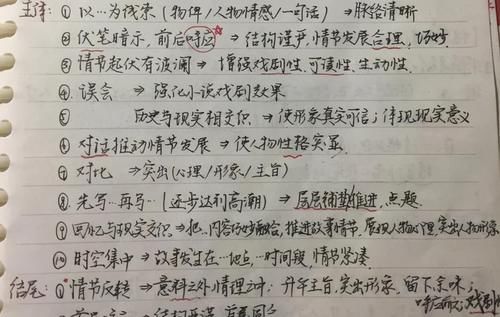 主体：① 以…为线索（物件/人物情感/一句话）⇒脉络清晰
② 伏笔暗示，前后呼应☆⇒结构严谨，情节发展合理，巧妙
③ 情节起伏有波澜 ⇒ 增强戏剧性，可读性，生动性.
④ 误会 ⇒ 强化小说戏剧效果
⑤ 历史与现实相交织 ⇒ 使形象真实可信；体现现实意义
⑥ 对话推动情节发展 ⇒ 使人物性格突显
⑦ 对比 ⇒突出（心理/形象/主旨）
⑧ 先写…再写…（逐步达到高潮）⇒层层铺垫推进，点题.
⑨ 回忆与现实交织⇒把…内容巧妙融合，推进故事情节，展现人物心理，突出人物形象
⑩ 时空集中 ⇒故事发生在…地点…时间段，情节紧凑
结尾：① 情节反转 ⇒ 意料之外，情理之中；升华主旨，突出形象，留下余味；戏剧